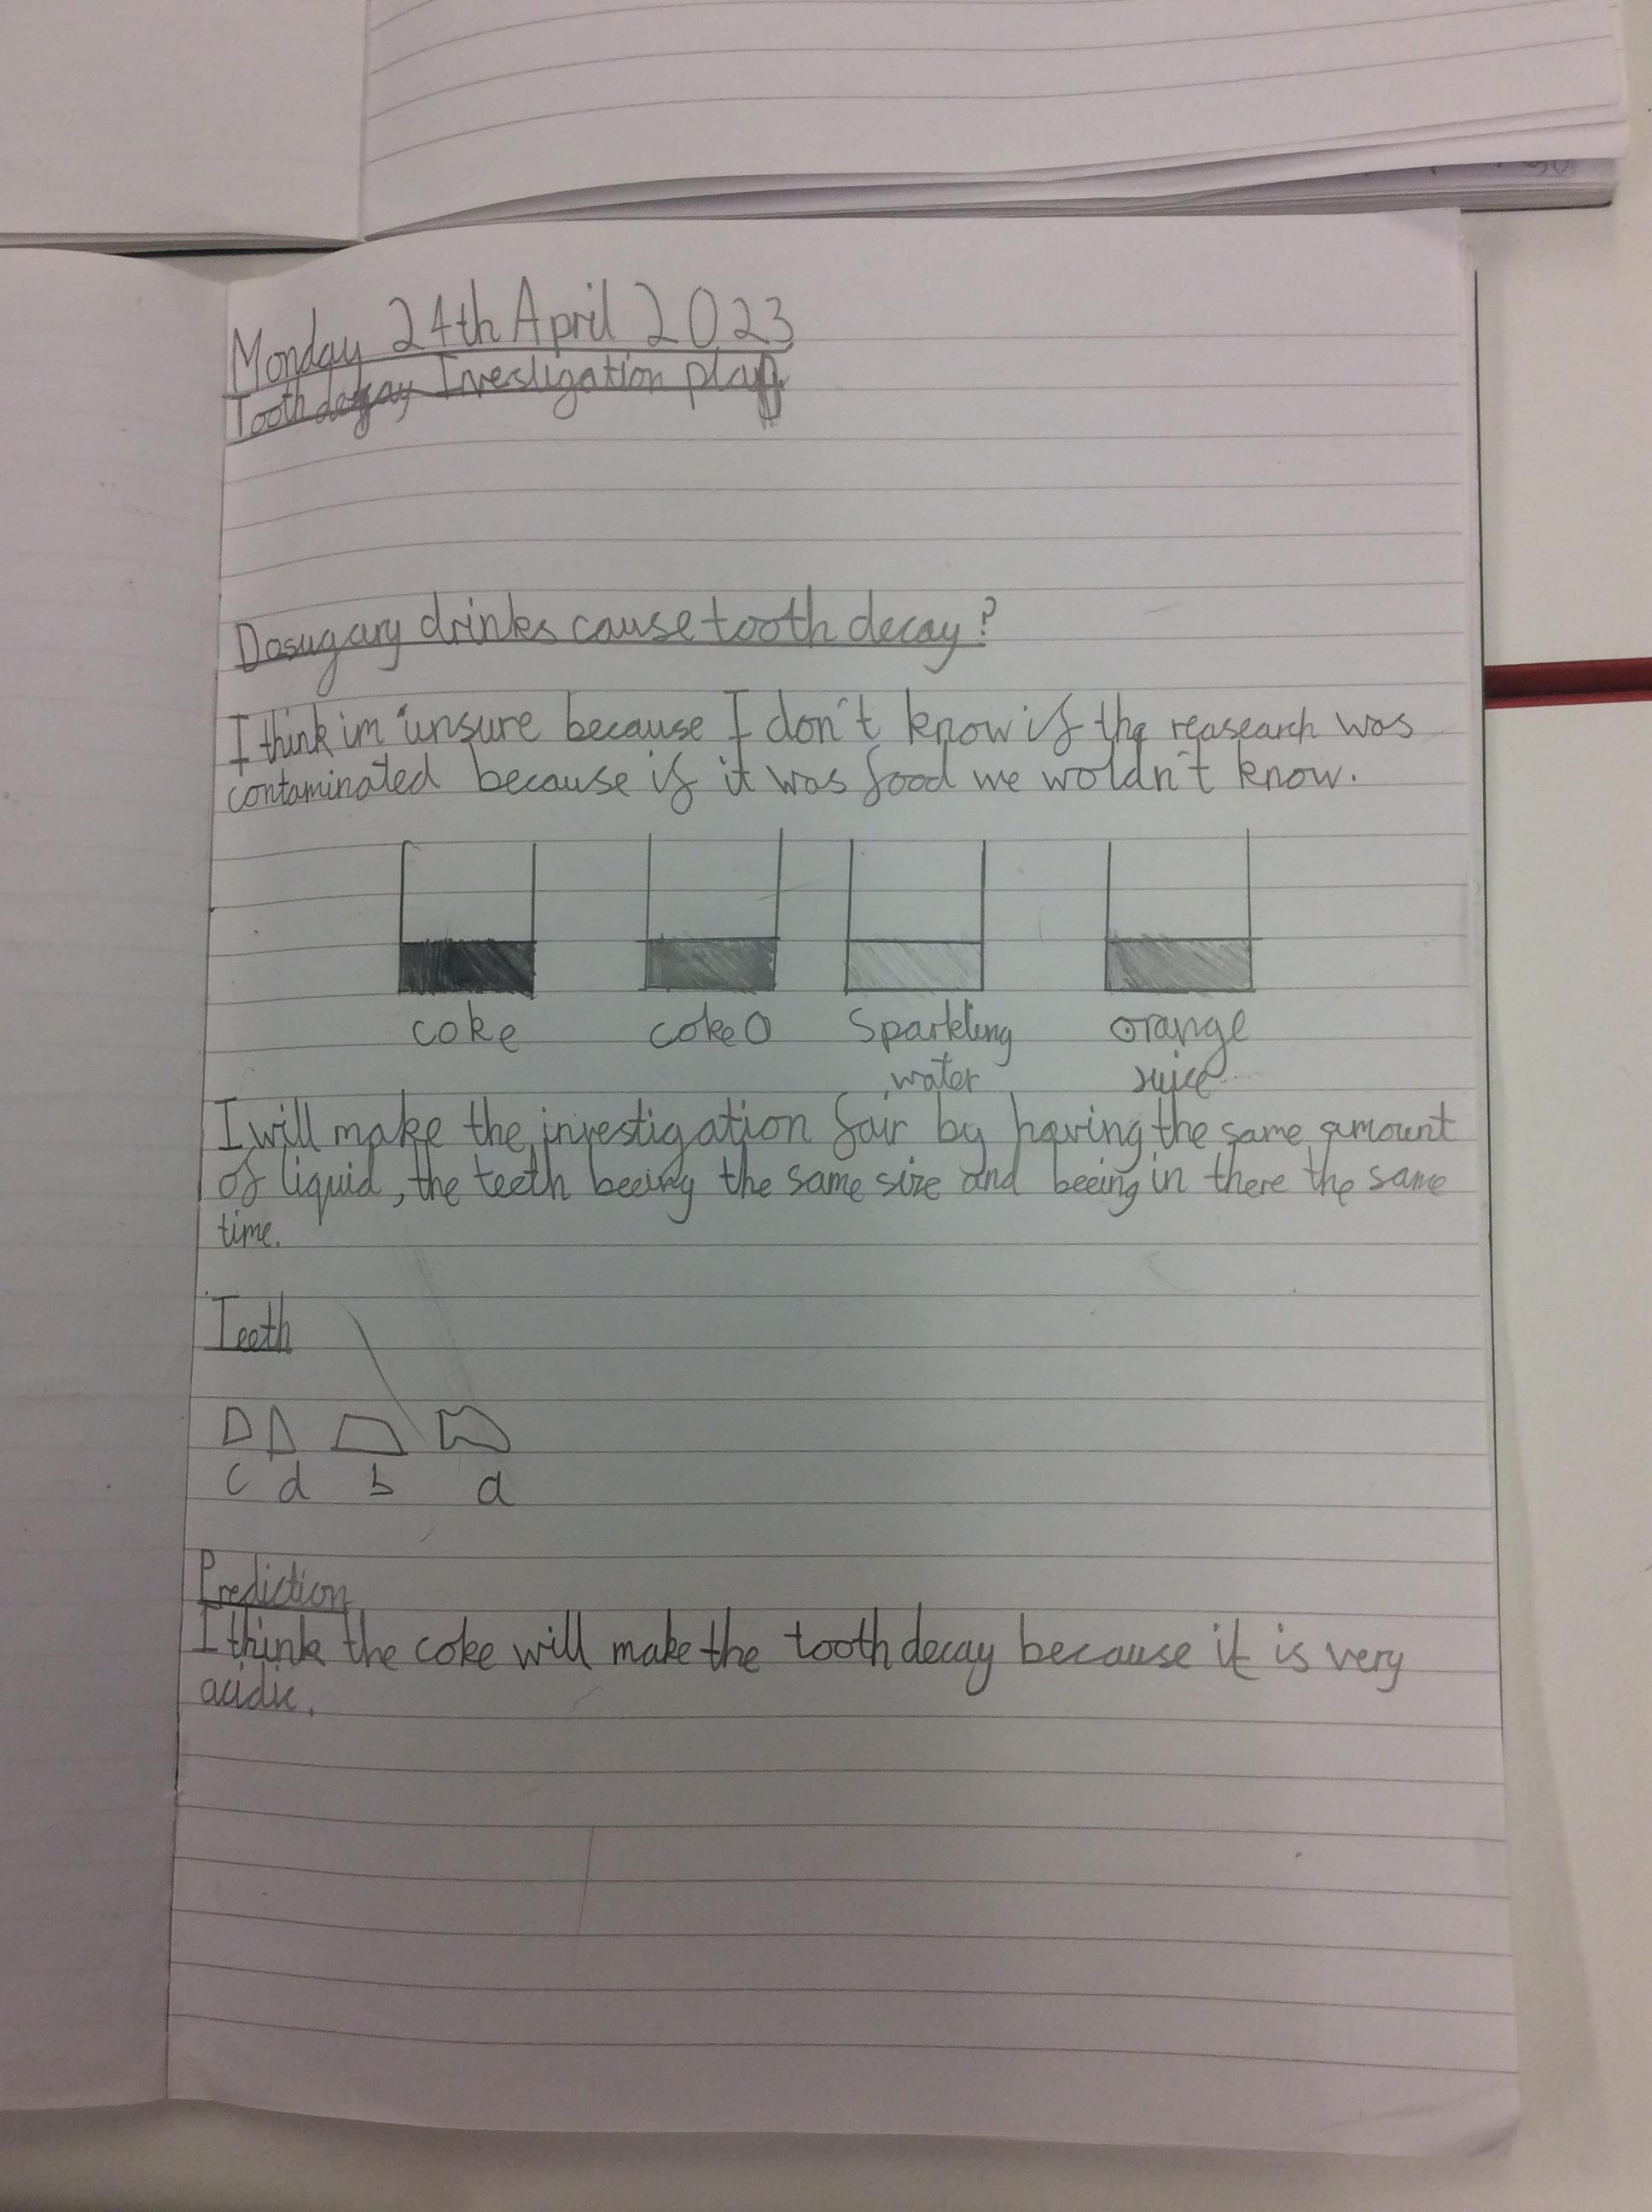 Monday 24th April 2023
Tooth decay Investigation plan
Do sugary drinks cause tooth decay?
I think im unsure because I don't know if the reasearch was
contaminated because if it was food we woldn't know.
coke coke 0 Sparkling water orange juice
I will make the investigation fair by having the same amount
of liquid, the teeth beeing the same size and beeing in there the same
time.
Teeth
c d b a
Prediction
I think the coke will make the tooth decay because it is very
acidic.